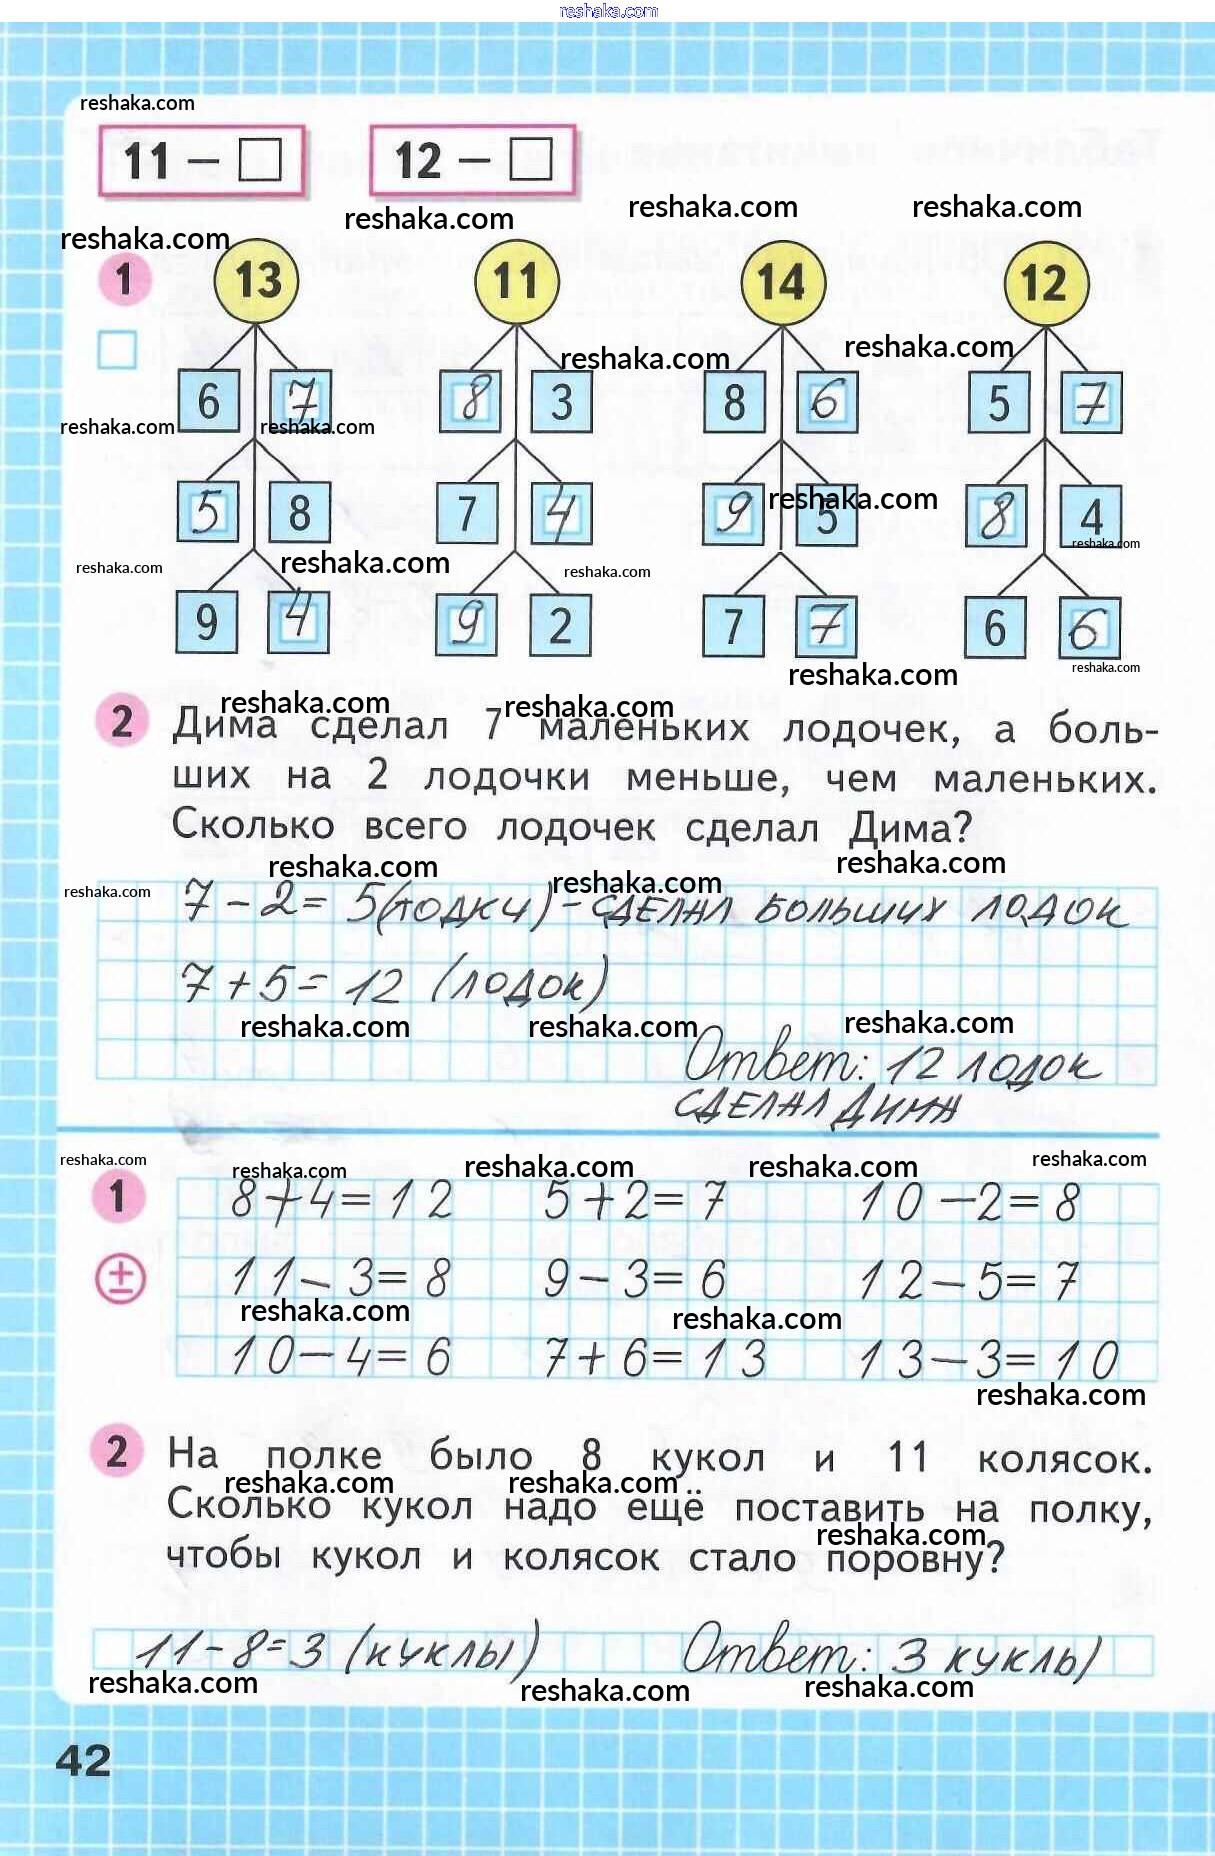 reshaka.com
reshaka.com
11 – □ 12 – □
reshaka.com reshaka.com reshaka.com reshaka.com
1 13 11 14 12
reshaka.com reshaka.com
6 7 8 3 8 6 5 7
reshaka.com reshaka.com
5 8 7 4 9 5 8 4
reshaka.com reshaka.com
reshaka.com reshaka.com reshaka.com
9 4 9 2 7 7 6 6
reshaka.com reshaka.com
reshaka.com reshaka.com
2 Дима сделал 7 маленьких лодочек, а боль-
ших на 2 лодочки меньше, чем маленьких.
Сколько всего лодочек сделал Дима?
reshaka.com reshaka.com
reshaka.com reshaka.com
7 – 2 = 5 (лодки) – сделал больших лодок
7 + 5 = 12 (лодок)
reshaka.com reshaka.com reshaka.com
Ответ: 12 лодок
сделал Дима
reshaka.com reshaka.com reshaka.com reshaka.com reshaka.com
1 8+4=12 5+2=7 10–2=8
± 11–3=8 9–3=6 12–5=7
reshaka.com reshaka.com
10–4=6 7+6=13 13–3=10
reshaka.com
2 На полке было 8 кукол и 11 колясок.
reshaka.com reshaka.com
Сколько кукол надо ещё поставить на полку,
reshaka.com
чтобы кукол и колясок стало поровну?
11–8=3 (куклы) Ответ: 3 куклы
reshaka.com reshaka.com reshaka.com
42